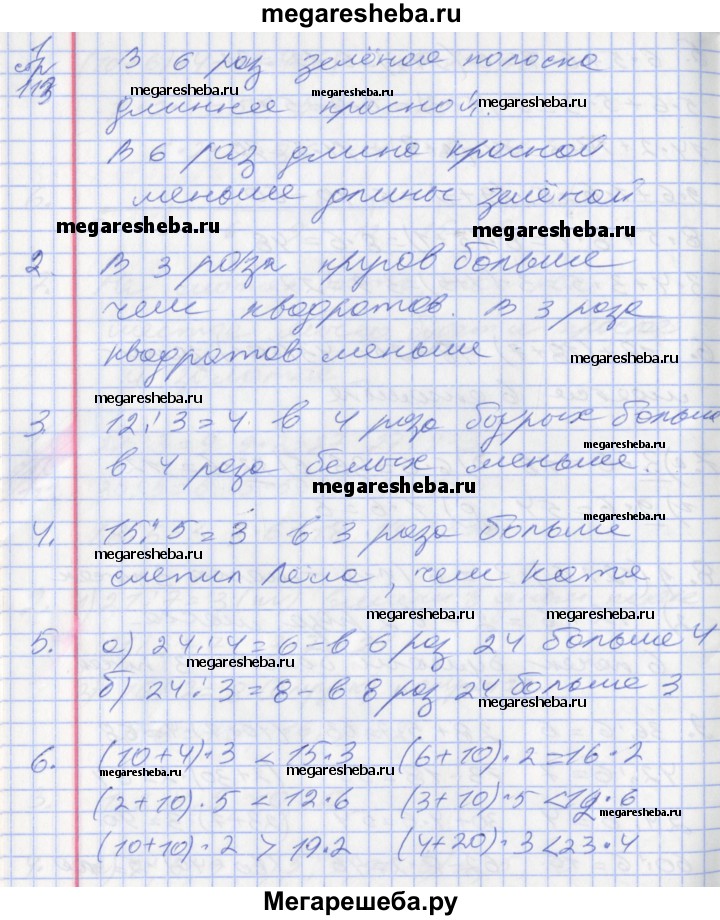 megaresheba.ru
1
стр
113
В 6 раз зелёная полоска
megaresheba.ru megaresheba.ru megaresheba.ru
длиннее красной.
В 6 раз длина красной
меньше длины зелёной
megaresheba.ru megaresheba.ru
2. В 3 раза кругов больше
чем квадратов. В 3 раза
квадратов меньше
megaresheba.ru
megaresheba.ru
3. 12:3=4 в 4 раза бурых больше
megaresheba.ru
в 4 раза белых меньше.
megaresheba.ru
4. 15:5=3 в 3 раза больше
megaresheba.ru megaresheba.ru
слепил Лёла, чем Катя
megaresheba.ru megaresheba.ru
5. а) 24:4=6-в 6 раз 24 больше 4
megaresheba.ru
б) 24:3=8-в 8 раз 24 больше 3
megaresheba.ru
6. (10+4)·3 < 15·3 (6+10)·2=16·2
megaresheba.ru megaresheba.ru
(2+10)·5 < 12·6 (3+10)·5 < 12·6
megaresheba.ru
(10+10)·2 > 19·2 (4+20)·3<23·4
Мегарешеба.ру